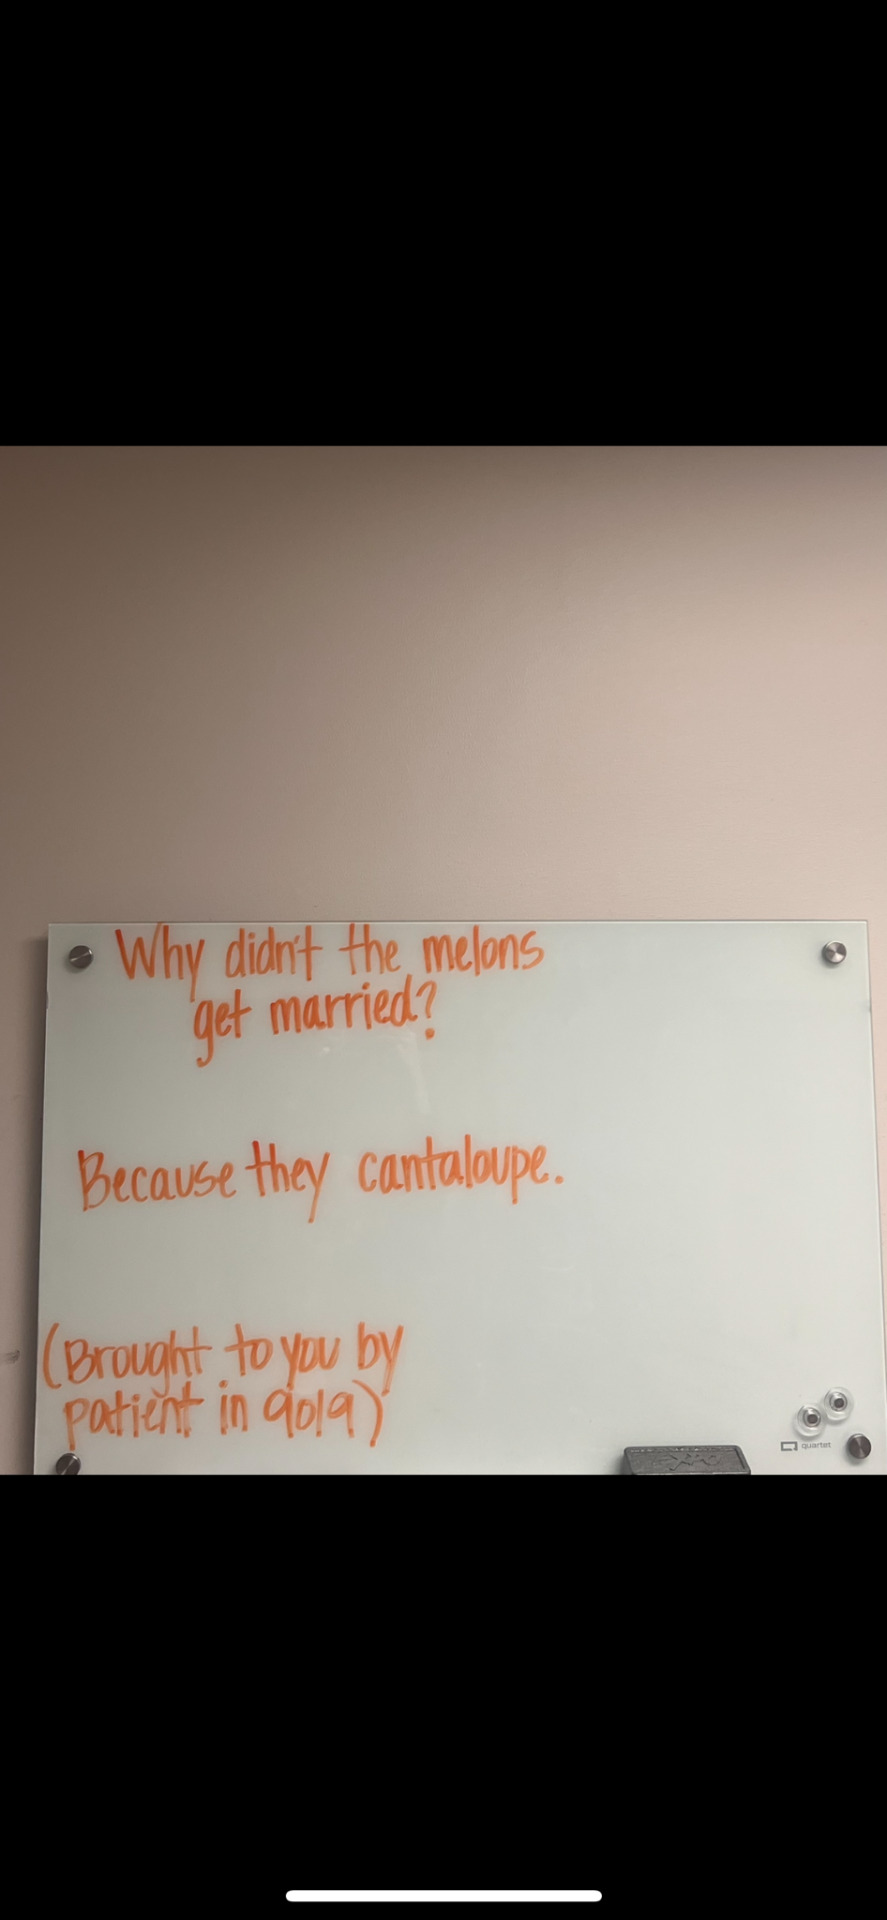 Why didn't the melons
get married?
Because they cantaloupe.
(Brought to you by
patient in 9019)
quartet
EXPO